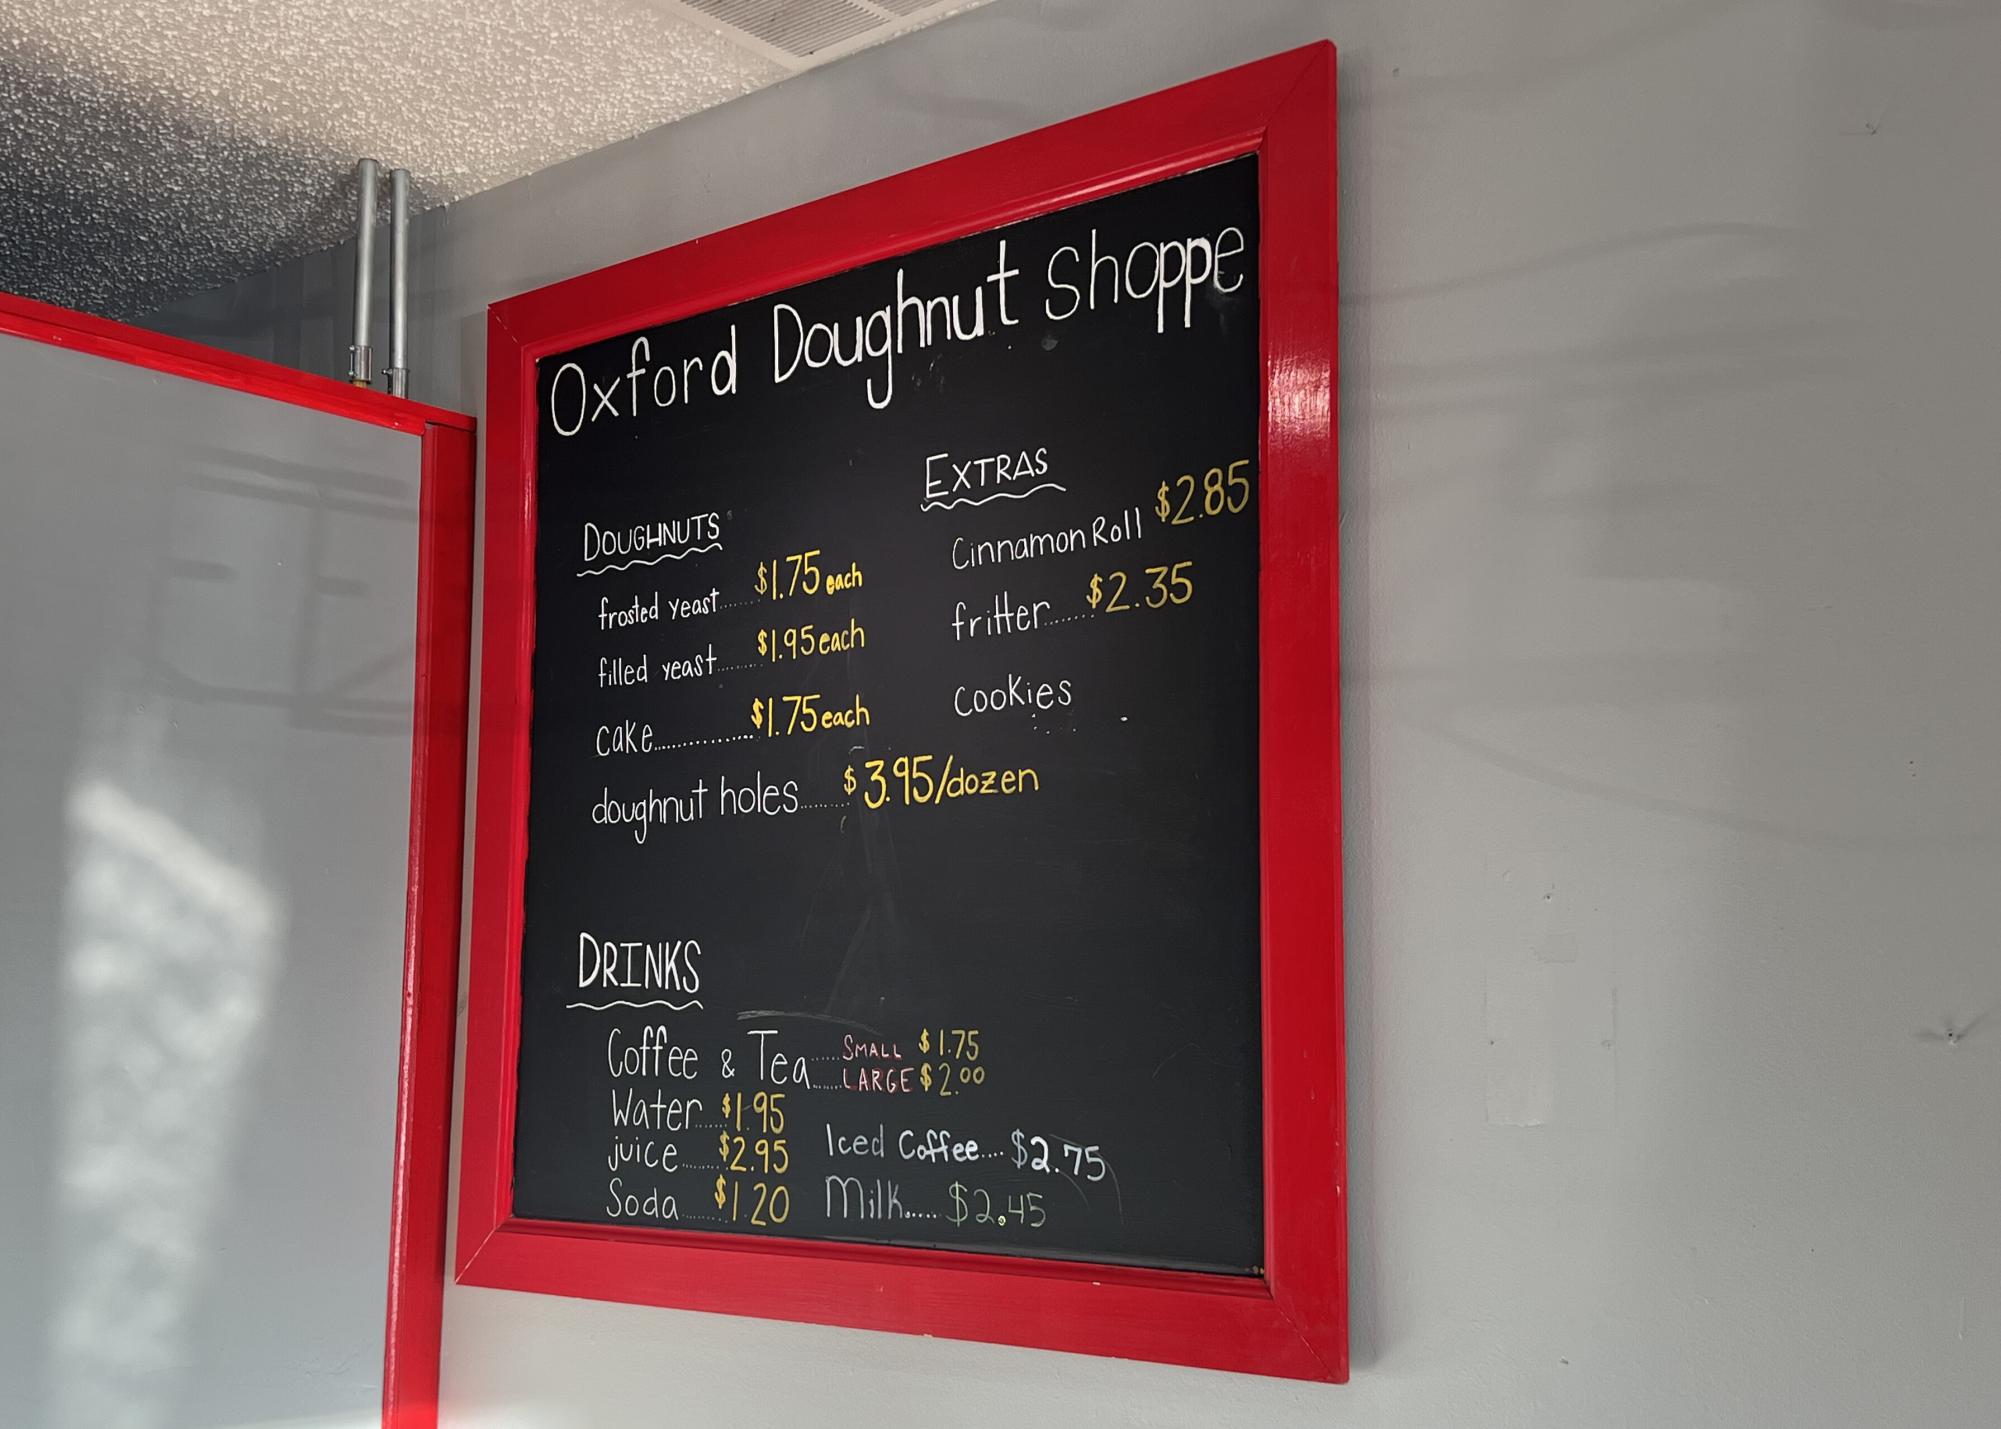 Oxford Doughnut Shoppe
DOUGHNUTS
frosted yeast........ $1.75 each
filled yeast......... $1.95 each
cake............... $1.75 each
doughnut holes......... $3.95/dozen
EXTRAS
Cinnamon Roll $2.85
fritter........ $2.35
Cookies
DRINKS
Coffee & Tea...... SMALL $1.75
LARGE $2.00
Water...... $1.95
juice........ $2.95
Soda......... $1.20
Iced Coffee.... $2.75
Milk...... $2.45